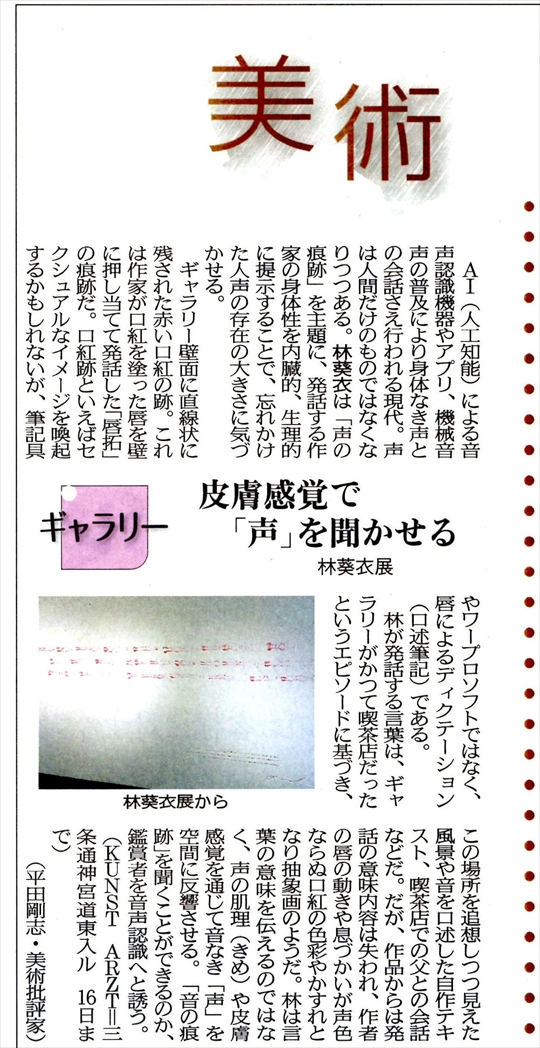 美術
　AI（人工知能）による音
声認識機器やアプリ、機械音
声の普及により身体なき声と
の会話さえ行われる現代。声
は人間だけのものではなくな
りつつある。林葵衣は「声の
痕跡」を主題に、発話する作
家の身体性を内臓的、生理的
に提示することで、忘れかけ
た人声の存在の大きさに気づ
かせる。
　ギャラリー壁面に直線状に
残された赤い口紅の跡。これ
は作家が口紅を塗った唇を壁
に押し当てて発話した「唇拓」
の痕跡だ。口紅跡といえばセ
クシュアルなイメージを喚起
するかもしれないが、筆記具
ギャラリー
皮膚感覚で
「声」を聞かせる
林葵衣展
やワープロソフトではなく、
唇によるディクテーション
（口述筆記）である。
　林が発話する言葉は、ギャ
ラリーがかつて喫茶店だった
というエピソードに基づき、
林葵衣展から
この場所を追想しつつ見えた
風景や音を口述した自作テキ
スト、喫茶店での父との会話
などだ。だが、作品からは発
話の意味内容は失われ、作者
の唇の動きや息づかいが声色
ならぬ口紅の色彩やかすれと
なり抽象画のようだ。林は言
葉の意味を伝えるのではな
く、声の肌理（きめ）や皮膚
感覚を通じて音なき「声」を
空間に反響させる。「音の痕
跡」を聞くことができるのか、
鑑賞者を音声認識へと誘う。
（KUNST　ARZT＝三
条通神宮道東入ル　16日ま
で）
（平田剛志・美術批評家）